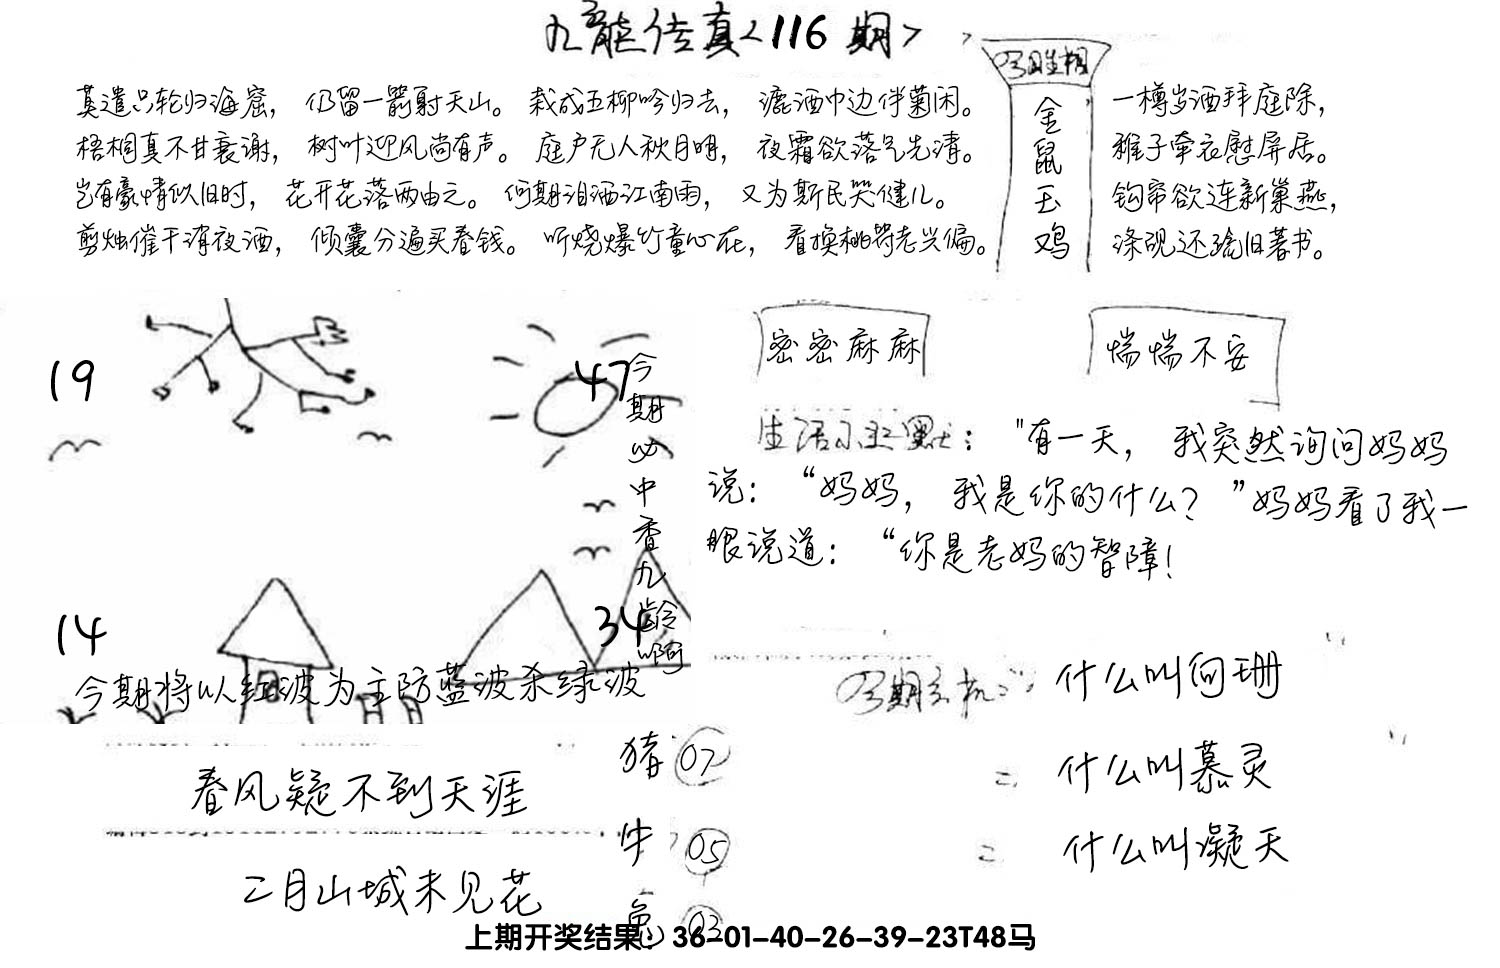 九龙传真<116期>
莫遣只轮归海窟，仍留一箭射天山。栽成五柳吟归去，漉酒巾边伴菊闲。
梧桐真不甘衰谢，树叶迎风尚有声。庭户无人秋月明，夜霜欲落气先清。
岂有豪情似旧时，花开花落两由之。何期泪洒江南雨，又为斯民哭健儿。
剪烛催干消夜酒，倾囊分遍买春钱。听烧爆竹童心在，看换桃符老兴偏。
今期生相
金
鼠
玉
鸡
一樽岁酒拜庭除，
稚子牵衣慰屏居。
钩帘欲连新巢燕，
涤砚还疏旧著书。
19
47
14
34
今期必中香九龄啊
今期将以红波为主防蓝波杀绿波
密密麻麻
惴惴不安
生活小幽默："有一天，我突然询问妈妈
说：“妈妈，我是你的什么？”妈妈看了我一
眼说道：“你是老妈的智障！
今期玄机：什么叫向珊
二 什么叫慕灵
二 什么叫凝天
春风疑不到天涯
二月山城未见花
猪 07
牛 05
兔 03
上期开奖结果：36-01-40-26-39-23T48马